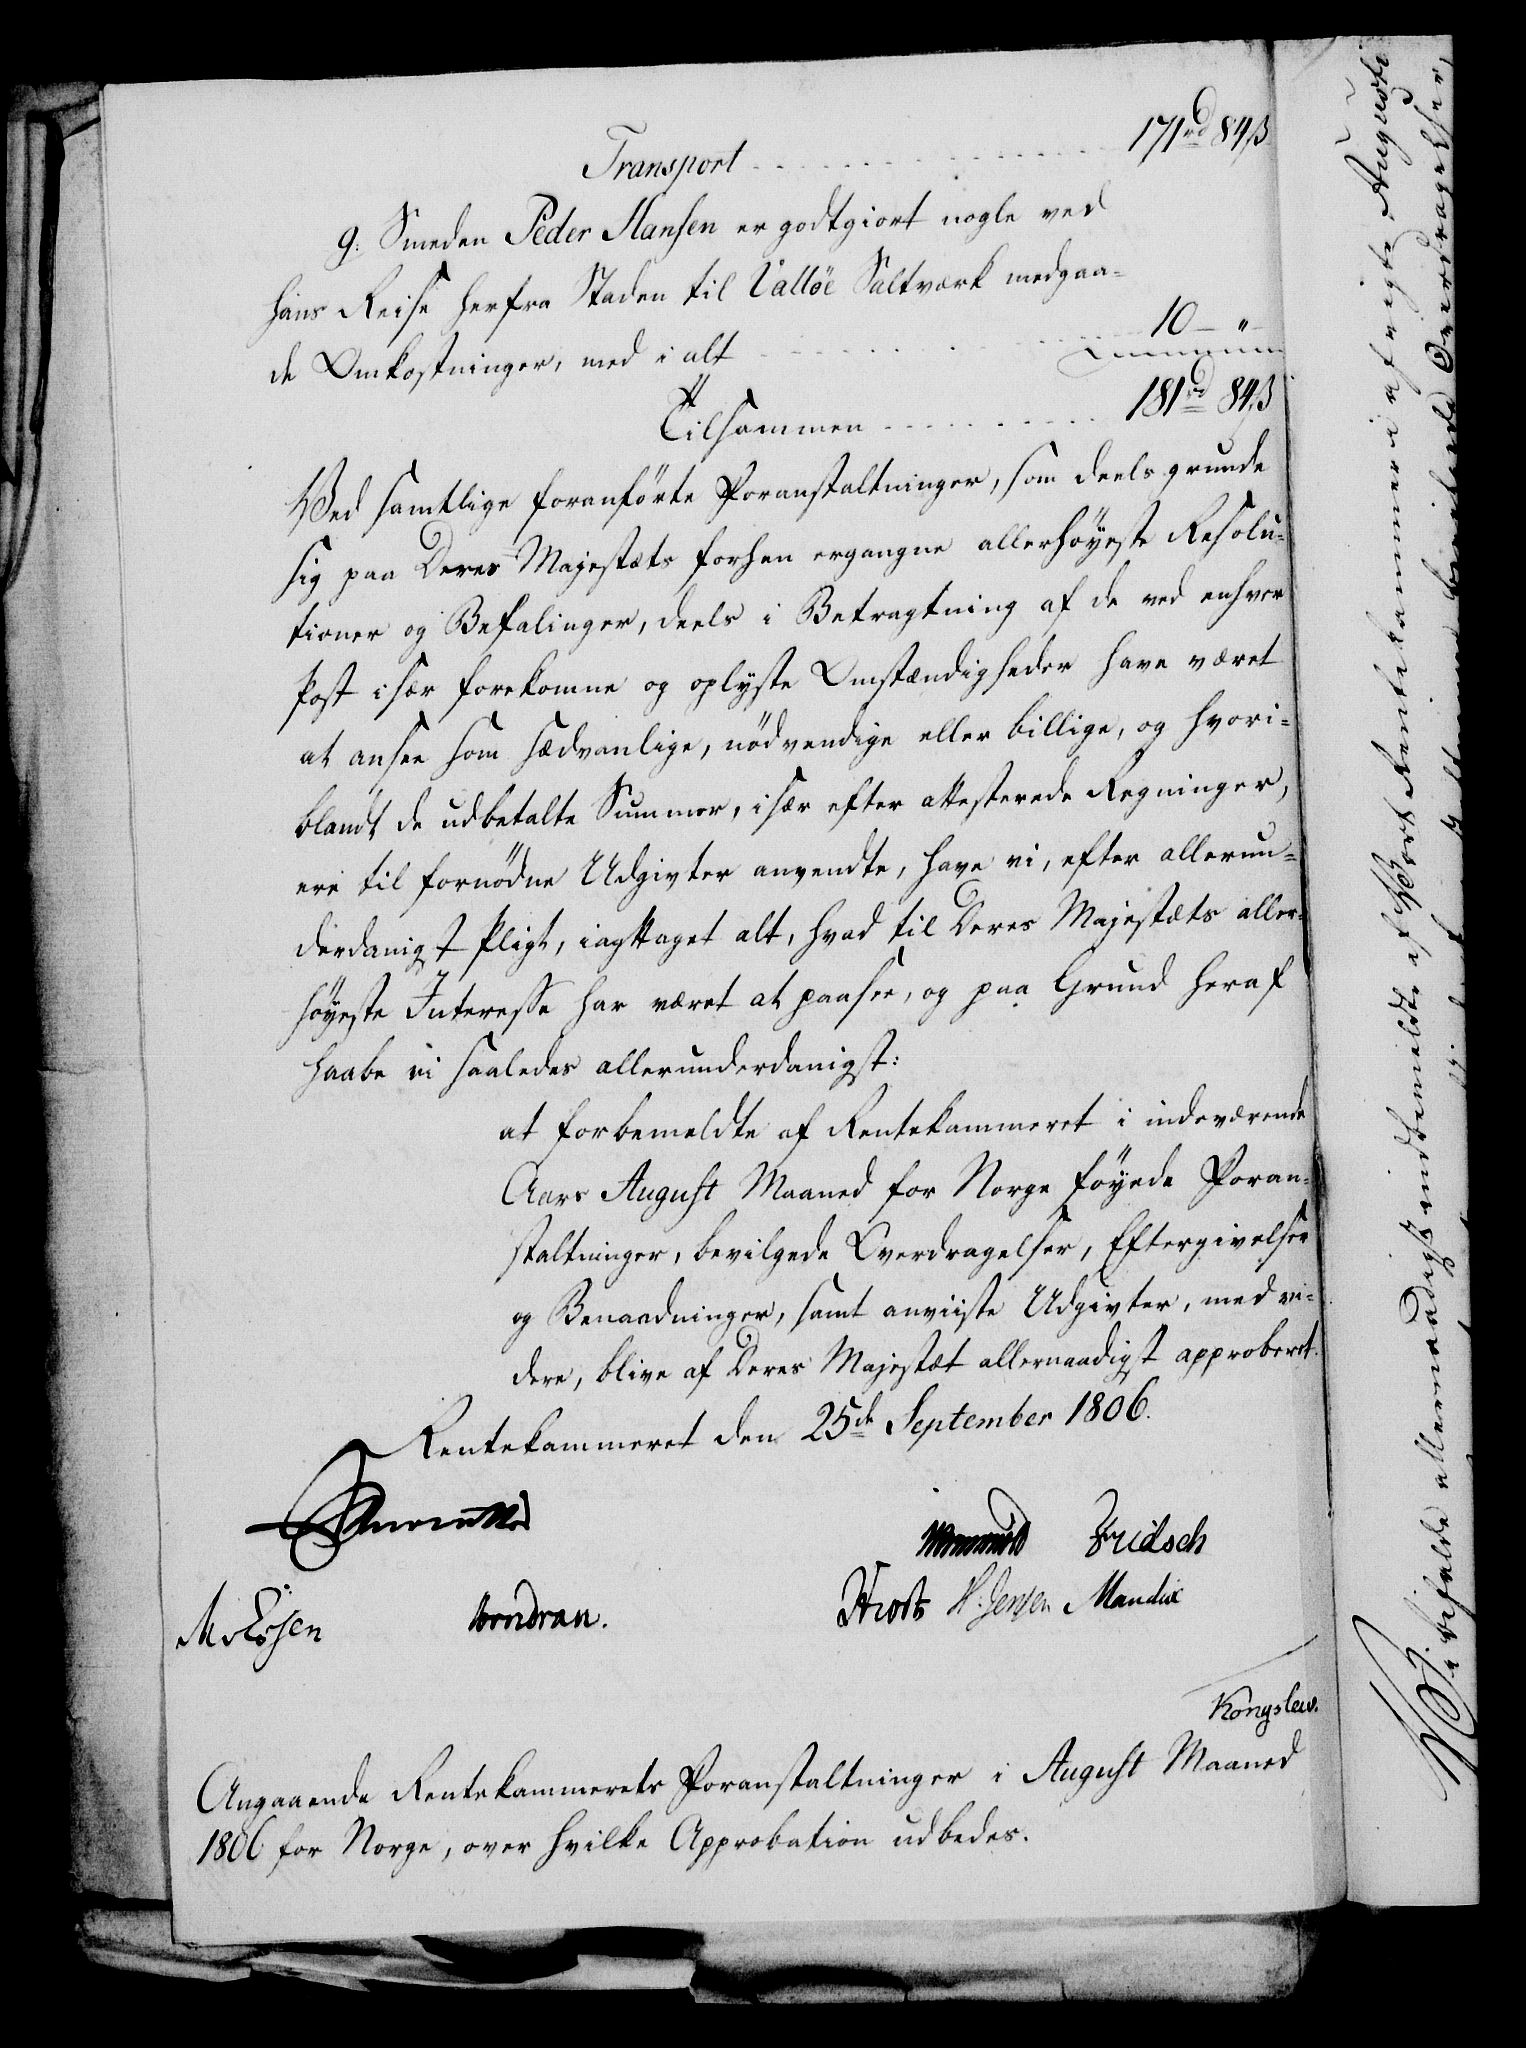 Transport - - - - - - - - - 171rd 84ß
9. Smeden Peder Hansen er godtgiort nogle ved
hans Reise herfra Staden til Valløe Saltværk medgaa=
de Omkostninger, med i alt - - - - - - 10 - "
Tilsammen - - - - - - - - 181rd 84ß
Ved samtlige foranførte Foranstaltninger, som deels grunde
sig paa Deres Majestæts forhen ergangne allerhøyeste Resolu=
tioner og Befalinger, deels i Betragtning af de ved enhver
Post især forekomne og oplyste Omstændigheder have været
at ansee som sædvanlige, nødvendige eller billige, og hvori=
blandt de udbetalte Summer, især efter attesterede Regninger,
ere til fornødne Udgivter anvendte, have vi, efter allerun=
derdanigst Pligt, iagttaget alt, hvad til Deres Majestæts aller=
høyeste Interesse har været at paasee, og paa Grund heraf
haabe vi saaledes allerunderdanigst:
at forbemeldte af Rentekammeret i indeværende
Aars August Maaned for Norge føyede Foran=
staltninger, bevilgede Overdragelser, Eftergivelser
og Benaadninger, samt anviiste Udgivter, med vi=
dere, blive af Deres Majestæt allernaadigst approberet.
Rentekammeret den 25de September 1806.
Fridsch
H. Jensen Mandix
Kongslew.
Angaaende Rentekammerets Foranstaltninger i August Maaned
1806 for Norge, over hvilke Approbation udbedes.
Vi bifalde allernaadigst indbemeldte af Vort Rentekammer i afvigte Augusti